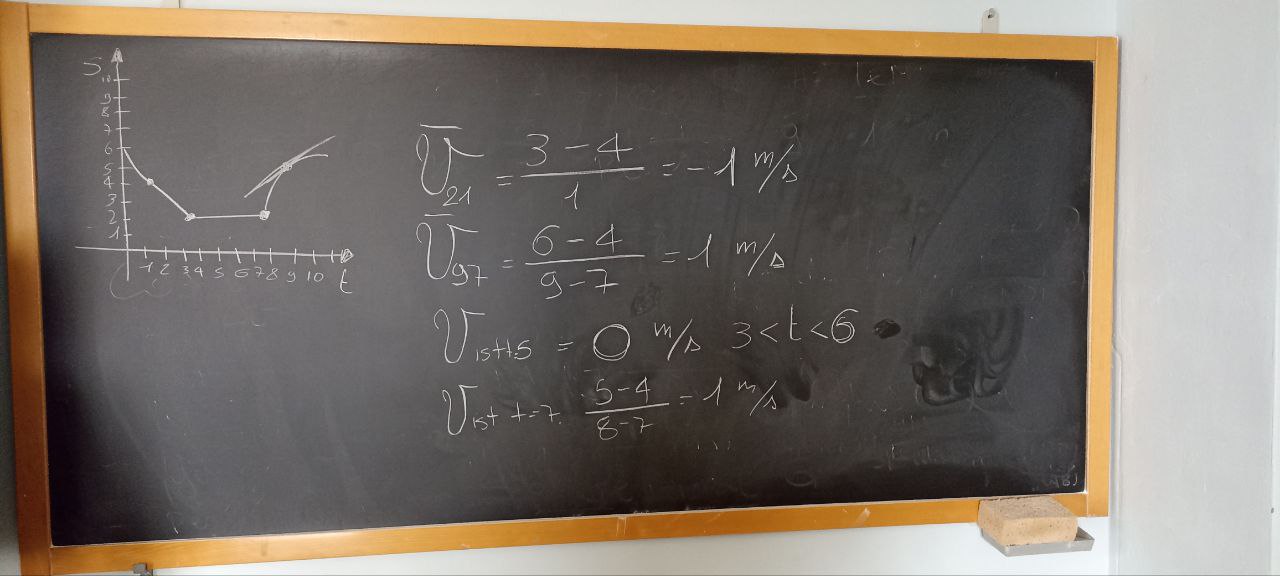 S
10
9
8
7
6
5
4
3
2
1
1 2 3 4 5 6 7 8 9 10 t
V̅₂₁ = (3 - 4)/1 = -1 m/s
V̅₉₇ = (6 - 4)/(9 - 7) = 1 m/s
V ist t.5 = 0 m/s 3 < t < 6
V ist t=7 (5-4)/(8-7) = 1 m/s